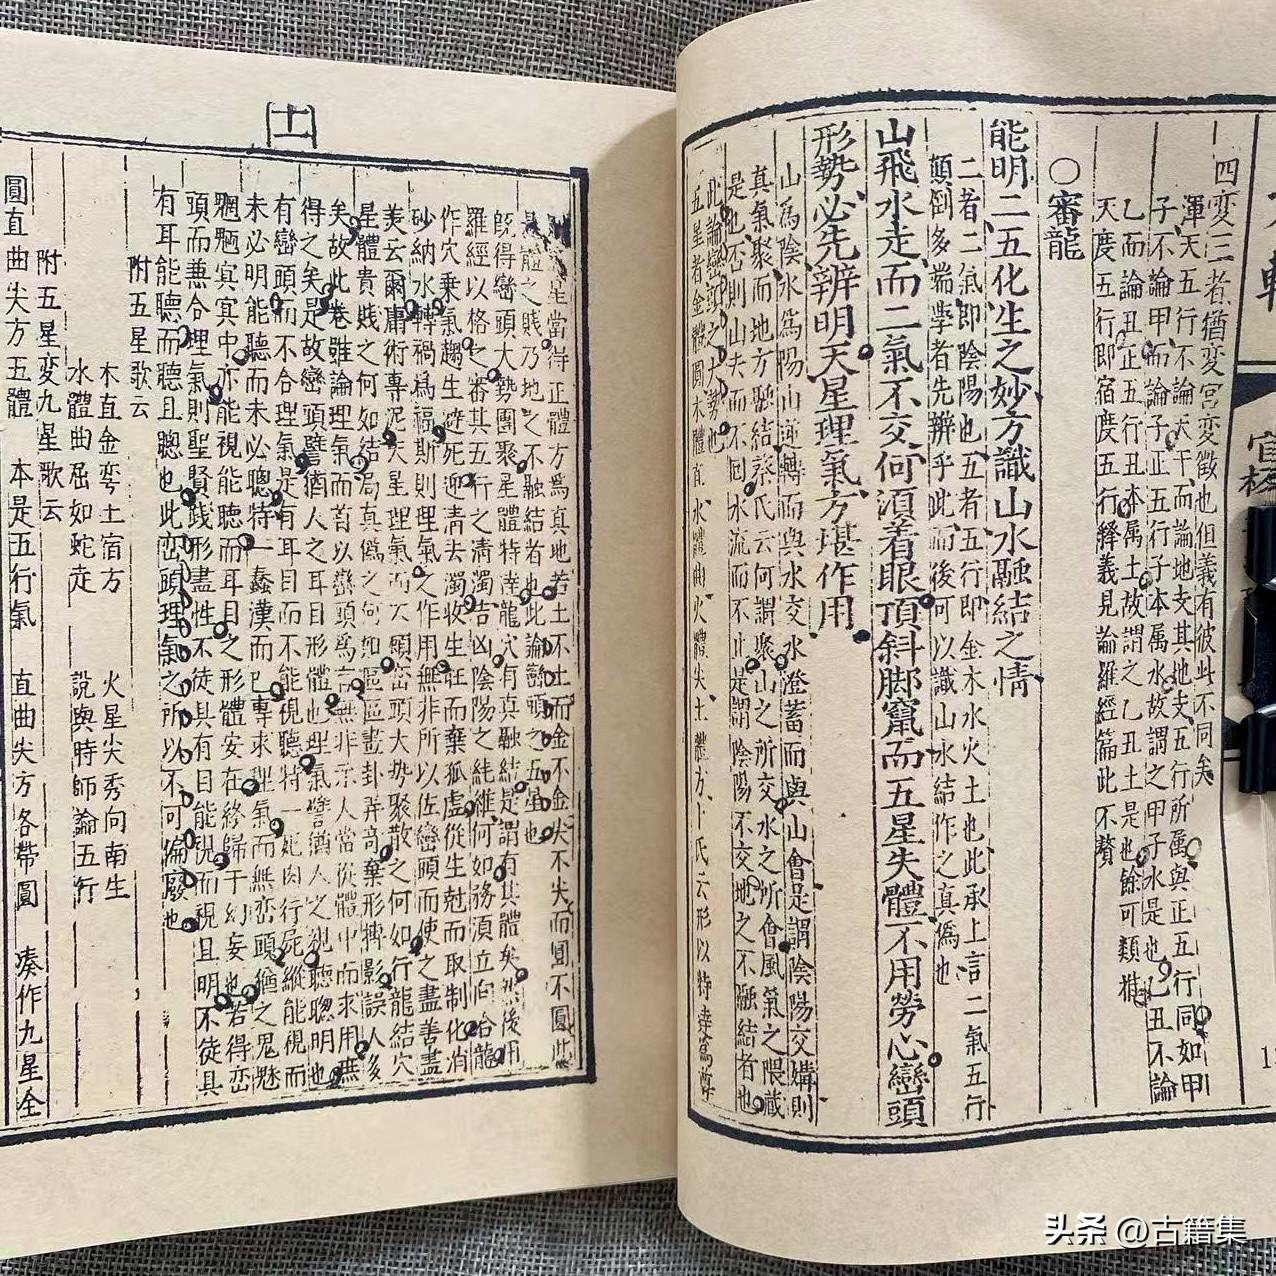 四変三者猶変宮変徵也但義有彼此不同矣
渾天五行不論天干而論地支其地支五行所属與正五行同如甲
子不論甲而論子正五行子本属水故謂之甲子水是也己丑不論
乙而論丑正五行丑本属土故謂之乙丑土是也餘可類推
天度五行即宿度五行釋義見論羅經篇此不贅
○審龍
能明二五化生之妙方識山水融結之情
二者二氣即陰陽也五者五行即金木水火土也此承上言二氣五行
顛倒多端學者先辨乎此而後可以識山水結作之真偽也
山飛水走而二氣不交何須着眼頂斜脚竄而五星失體不用勞心巒頭
形勢必先辨明天星理氣方堪作用
山為陰水為陽山逆轉而與水交水澄蓄而與山會是謂陰陽交媾則
真氣聚而地方融結蔡氏云何謂聚山之所交水之所會風氣之隈藏
是也否則山去而不回水流而不止是謂陰陽不交地之不融結者也
此論巒頭之大勢也
五星者金體圓木體直水體曲火體尖土體方卜氏云形以特達為尊
[十一]
星當得正體方為真地若土不土而金不金尖不尖而圓不圓此
體之賤乃地之不融結者也此論巒頭之五星也
既得巒頭大勢團聚星體特達龍穴有真融結是謂有其體矣然後用
羅經以格之審其五行之清濁吉凶陰陽之純雜何如務須立向合龍
作穴乗氣趨生避死迎清去濁收生旺而棄孤虛從生尅而取制化消
砂納水轉禍為福斯則理氣之作用無非所以佐巒頭而使之盡善盡
美云爾庸術專泥天星理氣而不顧巒頭大勢聚散之何如行龍結穴
星體貴賤之何如結局真偽之何如區區畫卦弄奇棄形捕影誤人多
矣故此卷雖論理氣而首以巒頭為言無非示人當從體中而求用庶
得之矣是故巒頭譬猶人之耳目形體也理氣譬猶人之視聽聰明也
有巒頭而不合理氣是有耳目而不能視聽特一死肉行屍縱能視而
未必明能聽而未必聰特一蠢漢而已專求理氣而無巒頭猶之鬼魅
魍魎㝠㝠中亦能視能聽而耳目之形體安在終歸于幻妄也若得巒
頭而兼合理氣則聖賢踐形盡性不徒具有目能視而視且明不徒具
有耳能聽而聽且聰也此巒頭理氣之所以不可偏廢也
附五星歌云
木直金彎土宿方 火星尖秀向南生
水體曲屈如蛇走 說與時師論五行
附五星変九星歌云
圓直曲尖方五體 本是五行氣 直曲尖方各帶圓 湊作九星全
頭条 @古籍集